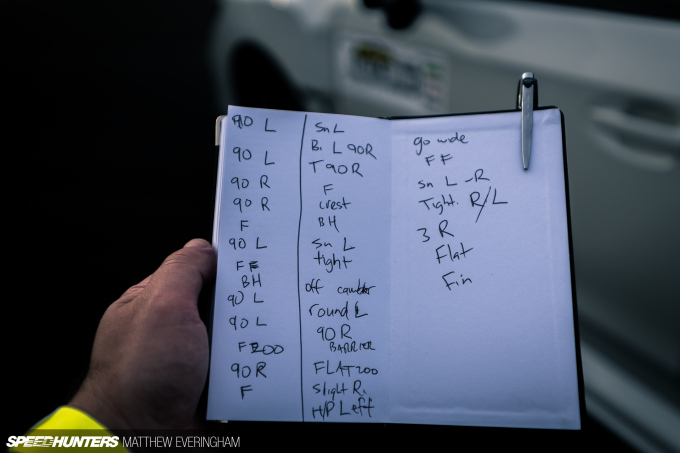 90 L
90 L
90 R
90 R
F
90 L
FF
BH
90 L
90 L
F 200
90 R
F
Sn L
Bi L 90R
T 90 R
F
crest
BH
Sn L
tight
off camber
round L
90 R
BARRIER
FLAT 200
Slight R.
H/P Left
go wide
FF
Sn L -R
Tight. R/L
3 R
Flat
Fin
SPEEDHUNTERS MATTHEW EVERINGHAM